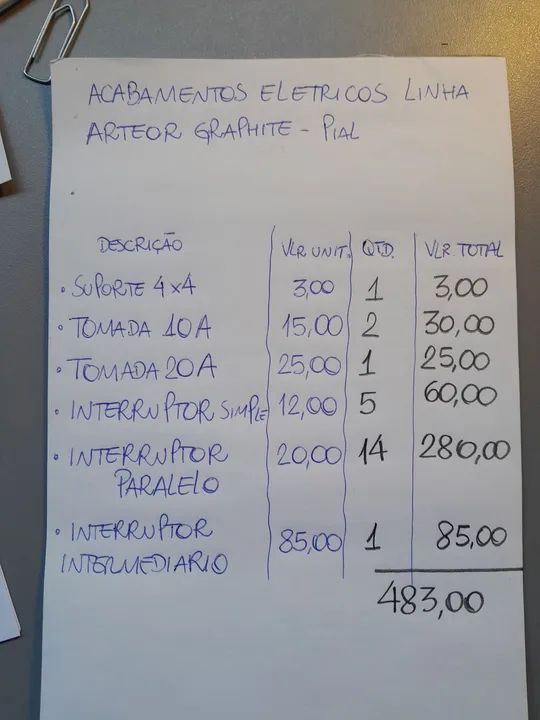 ACABAMENTOS ELETRICOS LINHA
ARTEOR GRAPHITE - PIAL
DESCRIÇÃO VLR UNIT. QTD. VLR TOTAL
• SUPORTE 4x4 3,00 1 3,00
• TOMADA 10A 15,00 2 30,00
• TOMADA 20A 25,00 1 25,00
• INTERRUPTOR SIMPLE 12,00 5 60,00
• INTERRUPTOR 20,00 14 280,00
PARALELO
• INTERRUPTOR 85,00 1 85,00
INTERMEDIARIO
483,00